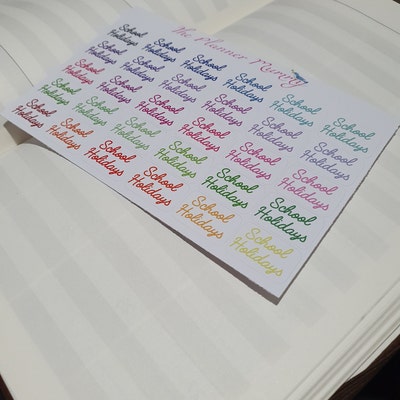 The Planner Penny
School School School School School School
Holidays Holidays Holidays Holidays Holidays Holidays
School School School School School School
Holidays Holidays Holidays Holidays Holidays Holidays
School School School School School School
Holidays Holidays Holidays Holidays Holidays Holidays
School School School School School School
Holidays Holidays Holidays Holidays Holidays Holidays
School School School School School School
Holidays Holidays Holidays Holidays Holidays Holidays